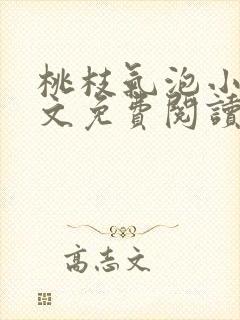 桃枝氣泡小
文免費閱讀
高志文